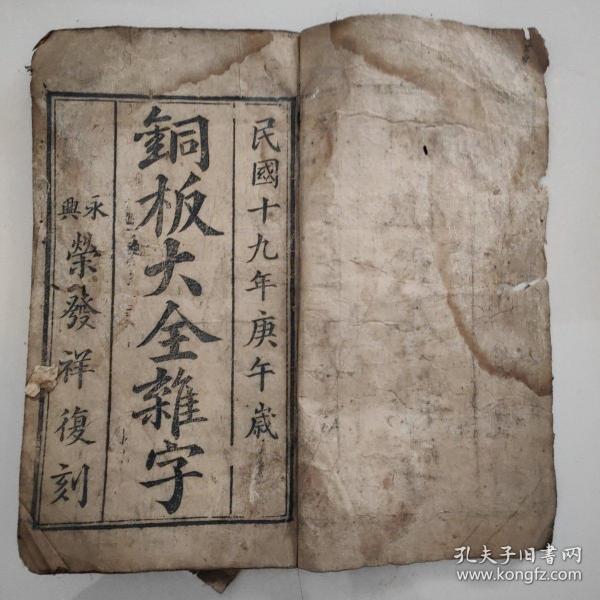 民國十九年庚午歲
銅板大全雜字
永興
榮發祥復刻
孔夫子旧书网
www.kongfz.com